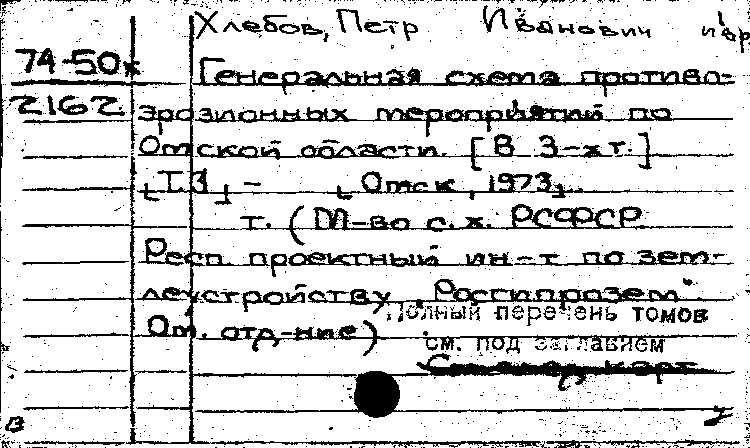 Хлебов, Петр Иванович и др
74-50х Генеральная схема противо-
2162. эрозионных мероприятий по
Омской области. [В 3-х т.]
[Т.3] - [Омск, 1973].
т. (М-во с. х. РСФСР.
Респ. проектный ин-т по зем-
леустройству „Росгипрозем".
Ом. отд-ние)
Полный перечень томов
см. под заглавием
карт
в